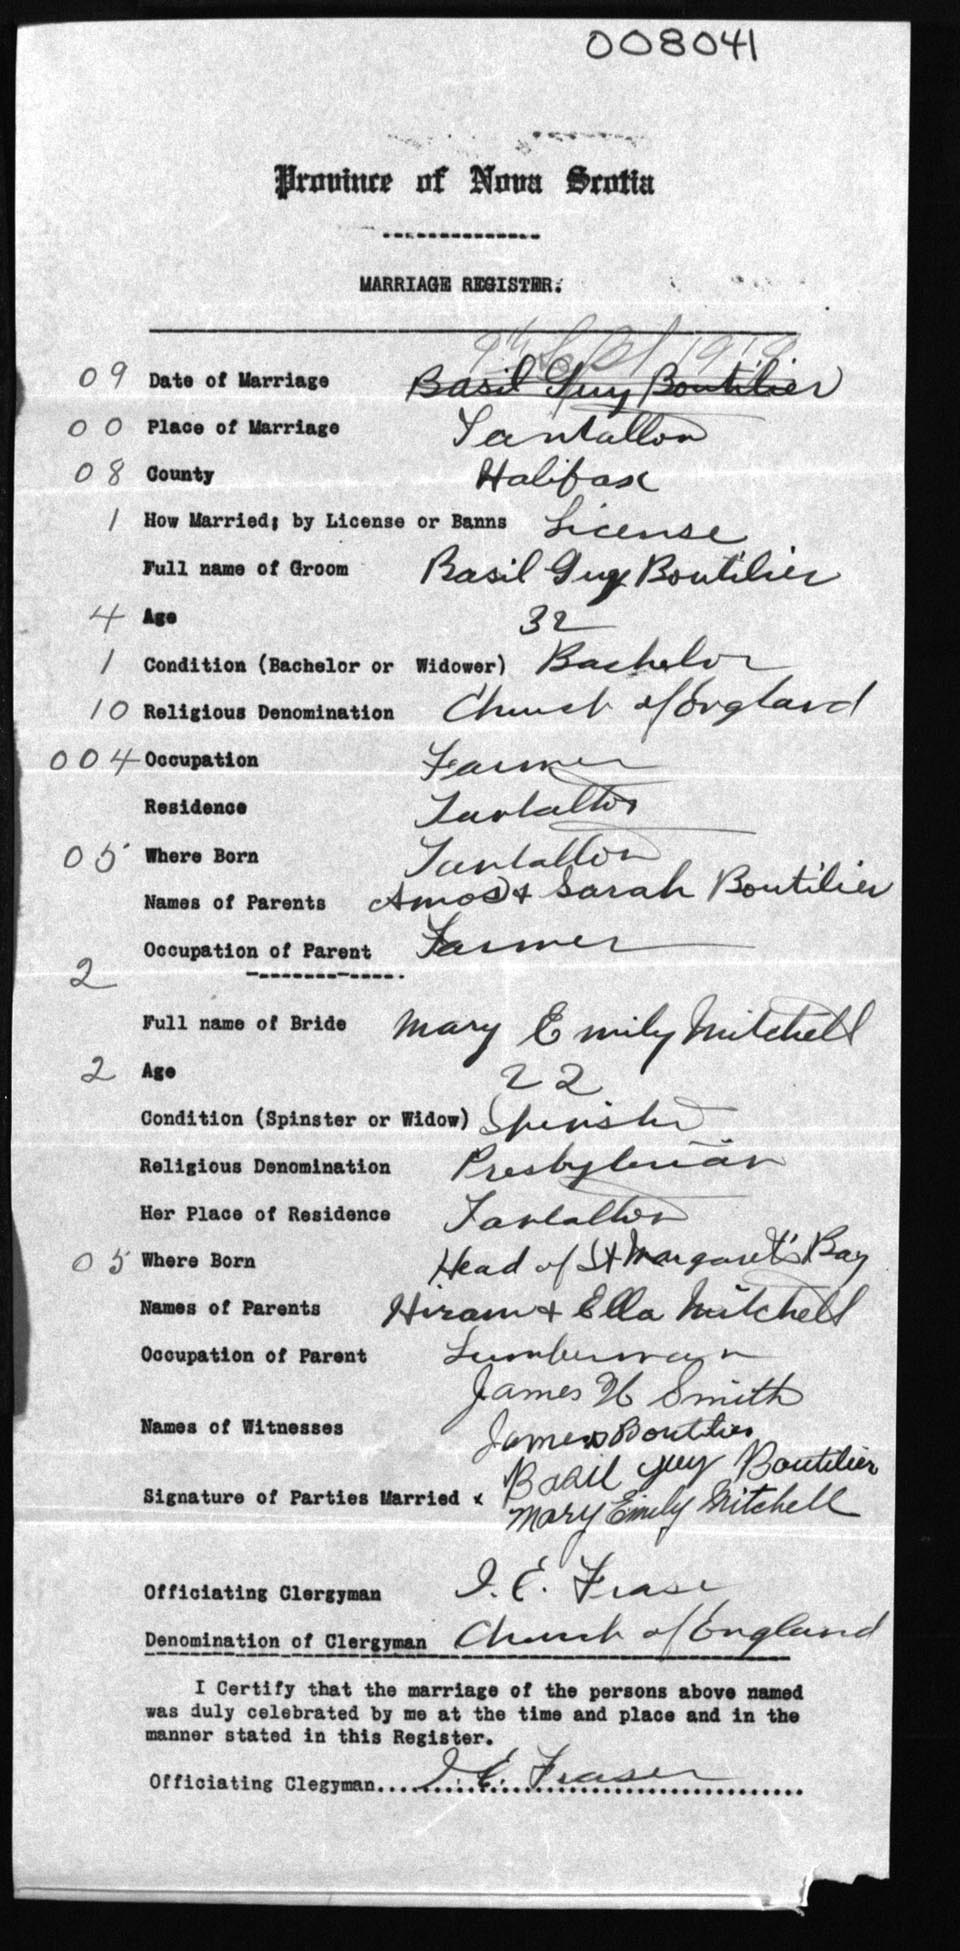 008041
Province of Nova Scotia
MARRIAGE REGISTER.
9th Sept 1919
09 Date of Marriage Basil Guy Boutilier
00 Place of Marriage Tantallon
08 County Halifax
1 How Married; by License or Banns License
Full name of Groom Basil Guy Boutilier
4 Age 32
1 Condition (Bachelor or Widower) Bachelor
10 Religious Denomination Church of England
004 Occupation Farmer
Residence Tantallon
05 Where Born Tantallon
Names of Parents Amos & Sarah Boutilier
Occupation of Parent Farmer
2
Full name of Bride Mary Emily Mitchell
2 Age 22
Condition (Spinster or Widow) Spinster
Religious Denomination Presbyterian
Her Place of Residence Tantallon
05 Where Born Head of St Margaret's Bay
Names of Parents Hiram & Ella Mitchell
Occupation of Parent Lumberman
James W Smith
Names of Witnesses James Boutilier
Basil Guy Boutilier
Signature of Parties Married x Mary Emily Mitchell
Officiating Clergyman I. E. Fraser
Denomination of Clergyman Church of England
I Certify that the marriage of the persons above named
was duly celebrated by me at the time and place and in the
manner stated in this Register.
Officiating Clegyman.... I. E. Fraser